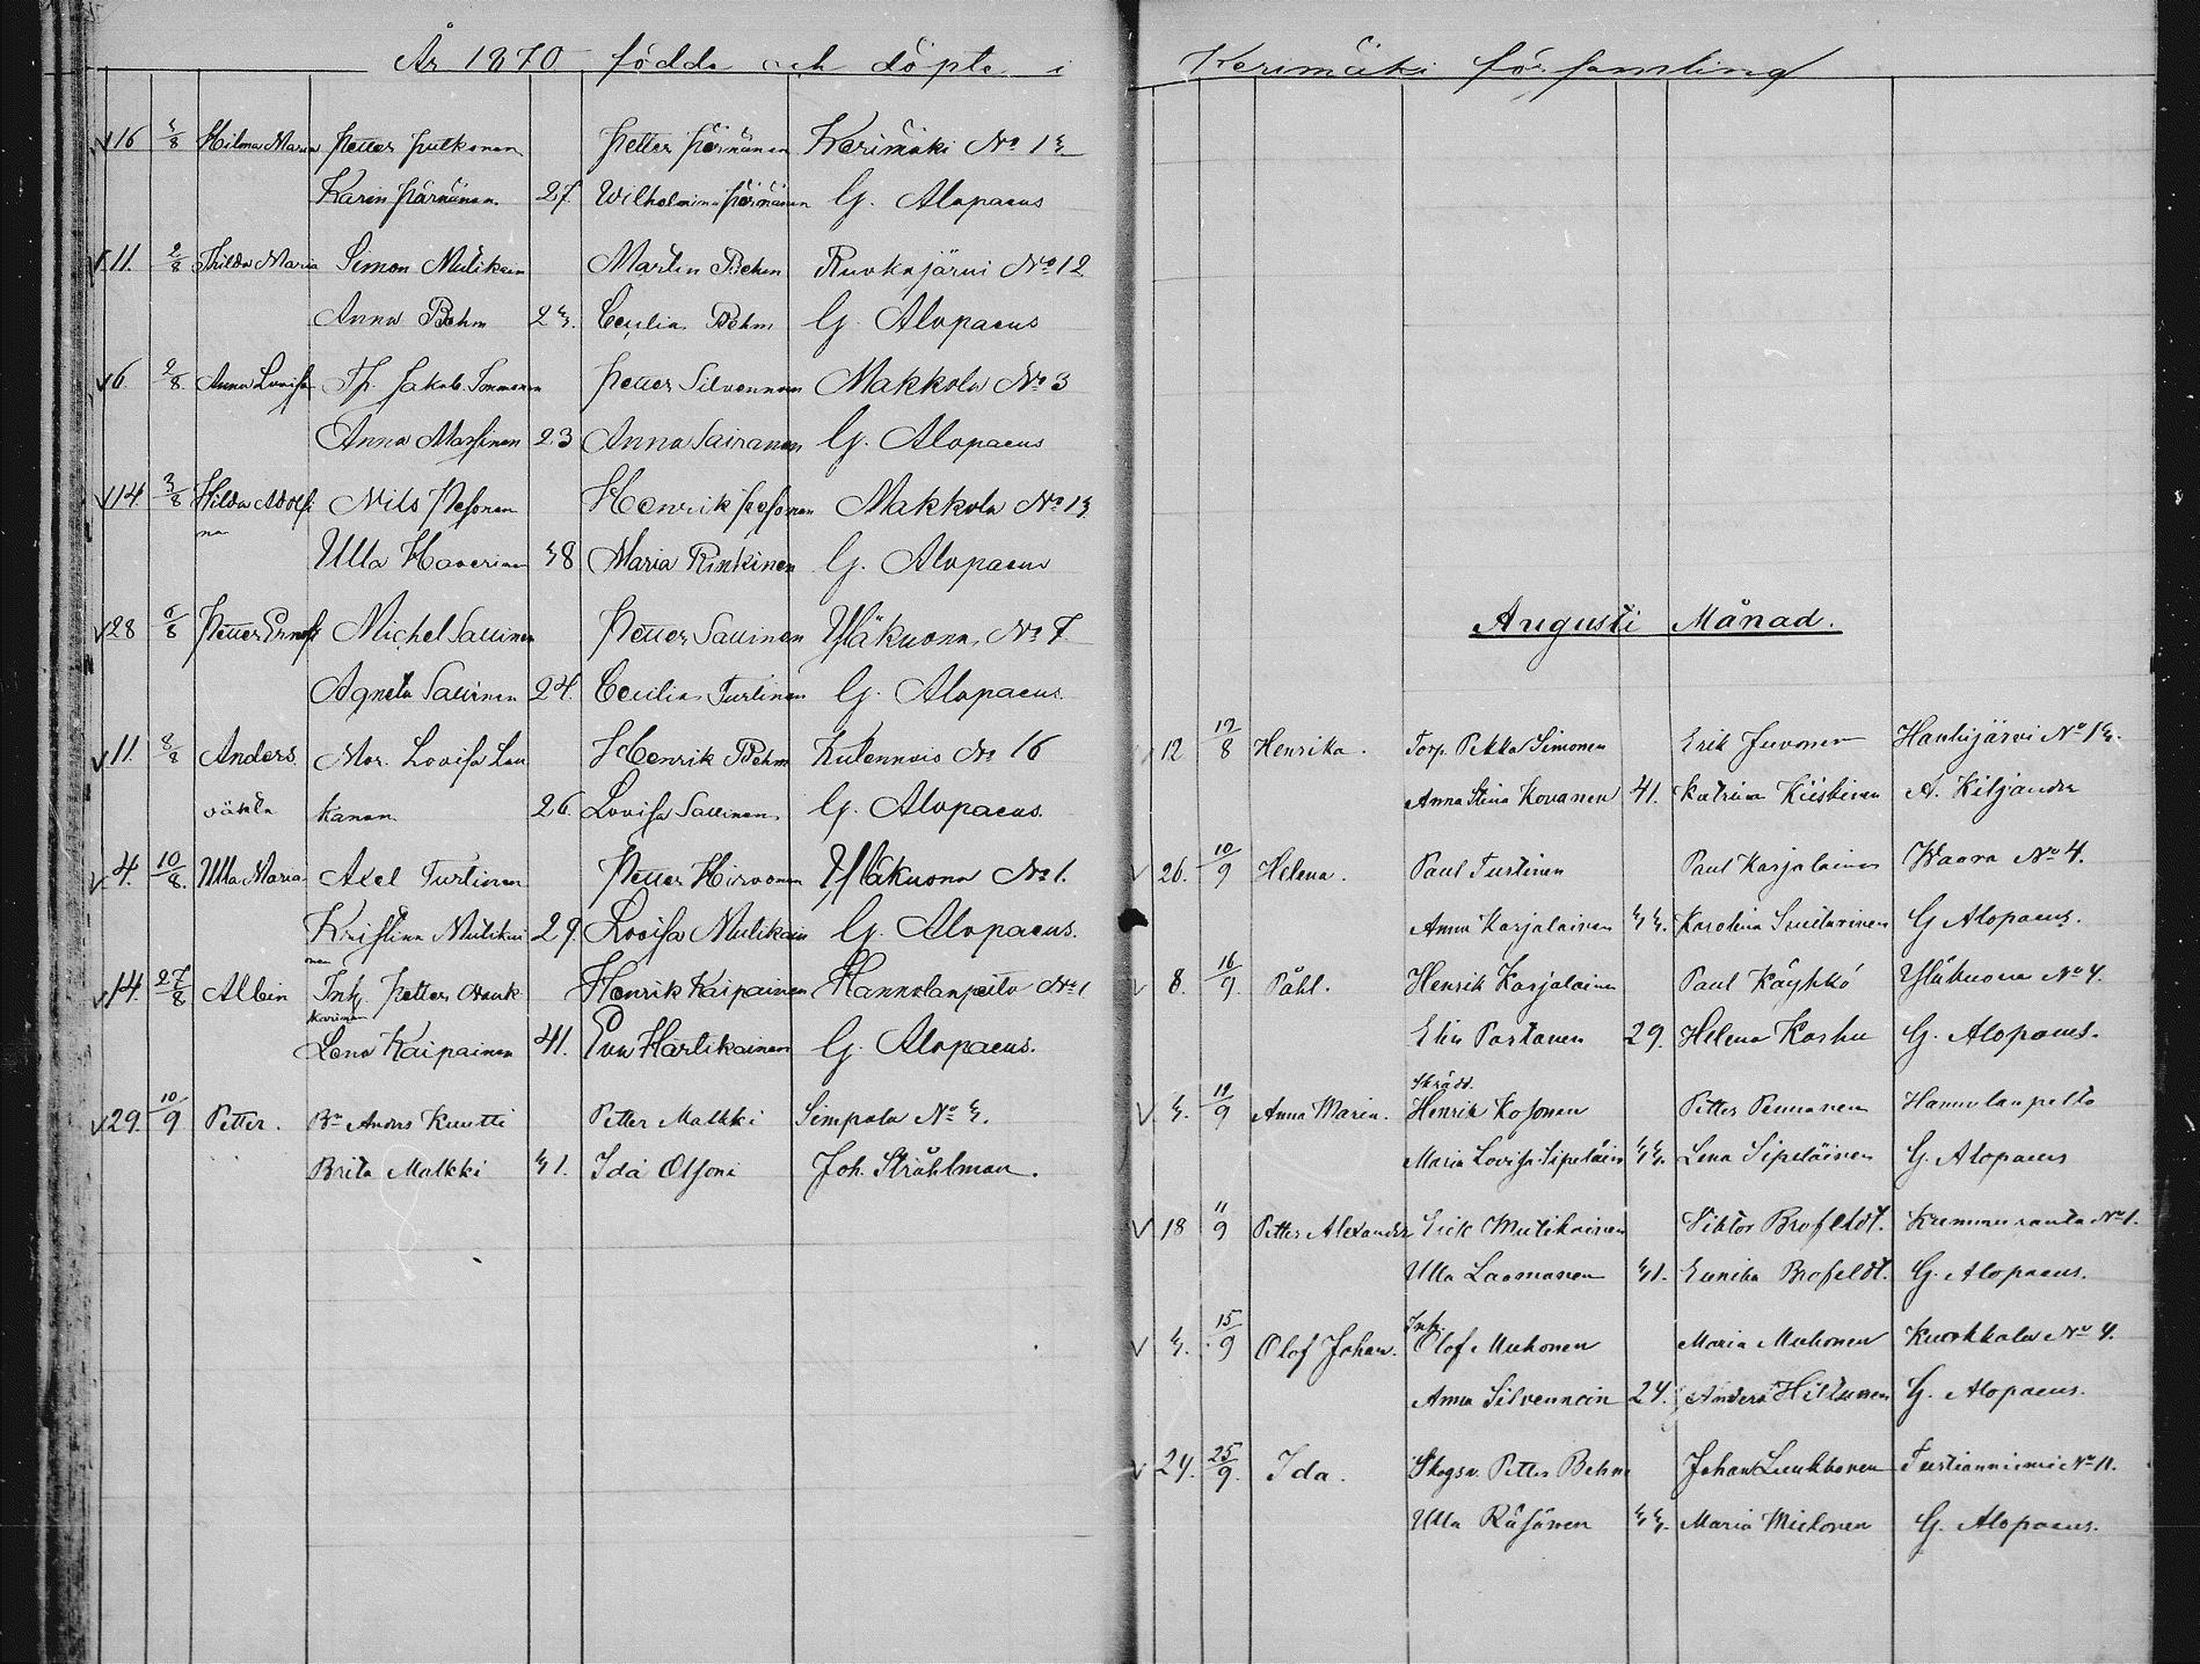 År 1870 födda och döpta i Kerimäki församling
16 5/8 Hilma Maria Petter Pulkonen Petter Pärnänen Kerimäki No 15
Karin Pärnänen 27. Wilhelmina Pärnänen G. Alopaeus
11. 2/8 Thilda Maria Simon Mutikain Martin Behm Ruokojärvi No 12
Anna Behm 25. Cecilia Behm G. Alopaeus
6. 2/8. Anna Lovisa Th. Jakob Petter Silvennoin Makkola No 3
Anna Massinen 23 Anna Sairanen G. Alopaeus
14. 3/8 Hilda Adolfi Nils Pesonen Henrik Pesonen Makkola No 13
na
Ulla Haverinen 38 Maria Rinkinen G. Alopaeus
28 6/8 Petter Ernst Michel Sallinen Petter Sallinen Yläkuona No 7
Agneta Sallinen 24. Cecilia Turtinen G. Alopaeus.
11. 8/8 Anders. Mor. Lovisa Lau Henrik Behm Kulennois No 16
oäkta kanen. 26. Lovisa Sallinen. G. Alopaeus.
4. 10/8. Ulla Maria Axel Turtinen Petter Hirvonen Yläkuona No 1.
Kristina Mutikai 29. Lovisa Mutikain G. Alopaeus.
nen
14. 27/8 Albin Inh. Petter Hauk Henrik Kaipainen Hannolanpelto No 1
karinen
Lena Kaipainen 41. Eva Härtikainen G. Alopaeus.
29. 10/9 Petter. Bn Anders Kuutti Petter Malkki Simpala No 5.
Brita Malkki 31. Ida Olsoni Joh. Stråhlman.
Augusti Månad.
12 12/8 Henrika. Torp. Pekka Simonen Erik Juvonen Hanhijärvi No 15.
Anna Stina Kovanen 41. Katrina Kiiskinen A. Kiljander
26. 10/9 Helena. Paul Turtinen Paul Karjalainen Waara No 4.
Anna Karjalainen 35. Karolina G Alopaeus.
8. 16/9. Påhl. Henrik Karjalainen Paul Käyhkö Yläkuona No 4.
Elin Partanen 29. Helena Karhu G. Alopaeus.
Skräd.
5. 11/9 Anna Maria. Henrik Kosonen Petter Pennanen Hannolanpelto
Maria Lovisa Sipeläin 35. Lena Sipeläinen G. Alopaeus
18 11/9 Petter Alexander Erik Mutikainen Viktor Brofeldt. Kummunranta No 1.
Ulla Laamanen 31. Eunika Brofeldt. G. Alopaeus.
Inh.
5. 15/9 Olof Johan. Olof Muhonen Maria Muhonen Kuokkala No 4.
Anna Silvennoin 24. Anders Hiltunen G. Alopaeus.
24. 25/9. Ida. Skogsv. Petter Behm Johan Luukkonen Turtianniemi No 11.
Ulla Räsänen 35. Maria Mielonen G. Alopaeus.